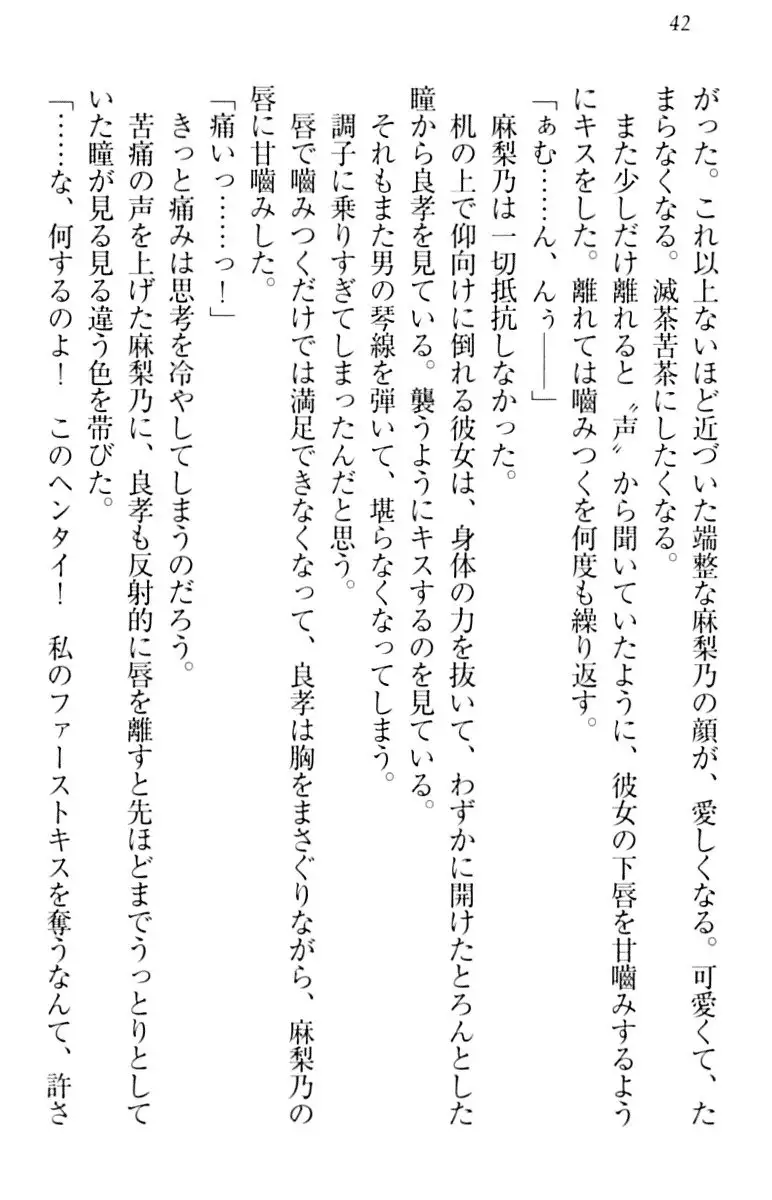 42
がった。これ以上ないほど近づいた端整な麻梨乃の顔が、愛しくなる。可愛くて、た
まらなくなる。滅茶苦茶にしたくなる。
また少しだけ離れると〝声〟から聞いていたように、彼女の下唇を甘嚙みするよう
にキスをした。離れては嚙みつくを何度も繰り返す。
「ぁむ……ん、んぅ――」
麻梨乃は一切抵抗しなかった。
机の上で仰向けに倒れる彼女は、身体の力を抜いて、わずかに開けたとろんとした
瞳から良孝を見ている。襲うようにキスするのを見ている。
それもまた男の琴線を弾いて、堪らなくなってしまう。
調子に乗りすぎてしまったんだと思う。
唇で嚙みつくだけでは満足できなくなって、良孝は胸をまさぐりながら、麻梨乃の
唇に甘嚙みした。
「痛いっ……っ！」
きっと痛みは思考を冷やしてしまうのだろう。
苦痛の声を上げた麻梨乃に、良孝も反射的に唇を離すと先ほどまでうっとりとして
いた瞳が見る見る違う色を帯びた。
「……な、何するのよ！　このヘンタイ！　私のファーストキスを奪うなんて、許さ